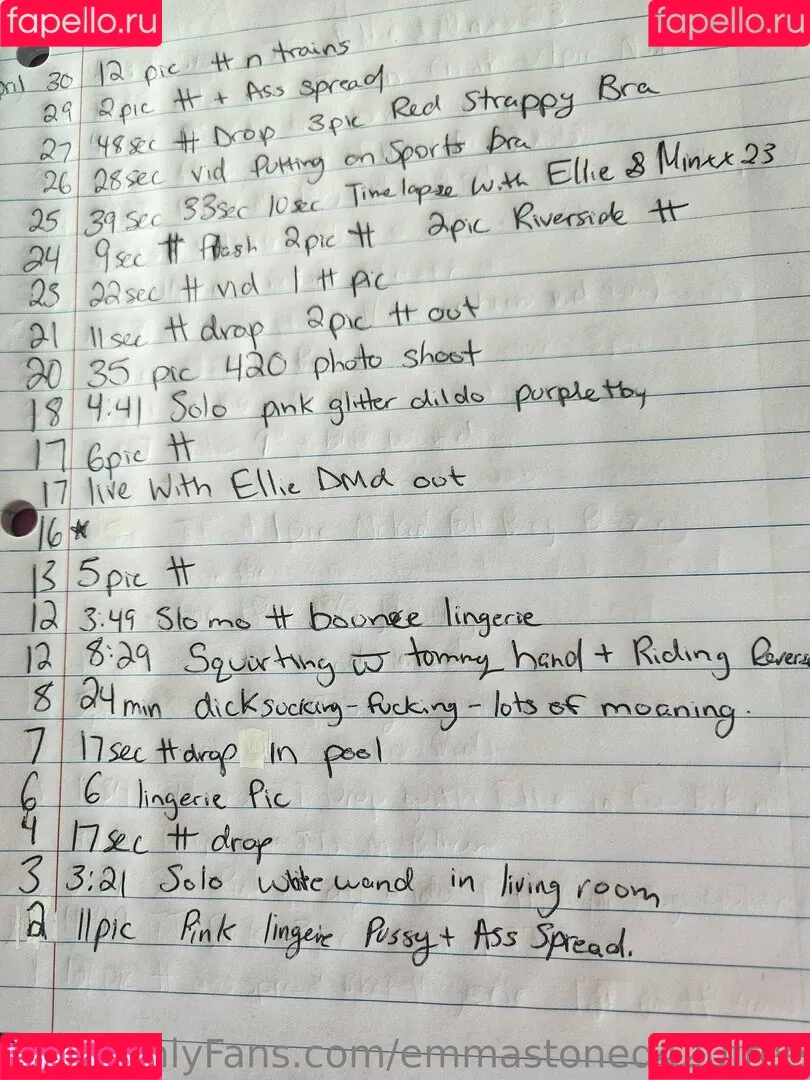 fapello.ru fapello.ru
30 12 pic tt n trains
29 2pic tt + Ass spread
27 48sec tt Drop 3pic Red Strappy Bra
26 28sec vid Putting on Sports bra
25 39sec 33sec 10sec Timelapse with Ellie & Minxx23
24 9sec tt flash 2pic tt 2pic Riverside tt
23 22sec tt vid 1 tt pic
21 11sec tt drop 2pic tt out
20 35 pic 420 photo shoot
18 4:41 Solo pink glitter dildo purple toy
17 6pic tt
17 live With Ellie DMd out
16*
13 5pic tt
12 3:49 Slo mo tt bounce lingerie
12 8:29 Squirting w tommy hand + Riding
8 24min dicksucking-fucking-lots of moaning.
7 17sec tt drop in pool
6 6 lingerie Pic
4 17sec tt drop
3 3:21 Solo white wand in living room
2 11pic Pink lingerie Pussy + Ass Spread.
fapello.ru OnlyFans.com/emmastoned fapello.ru